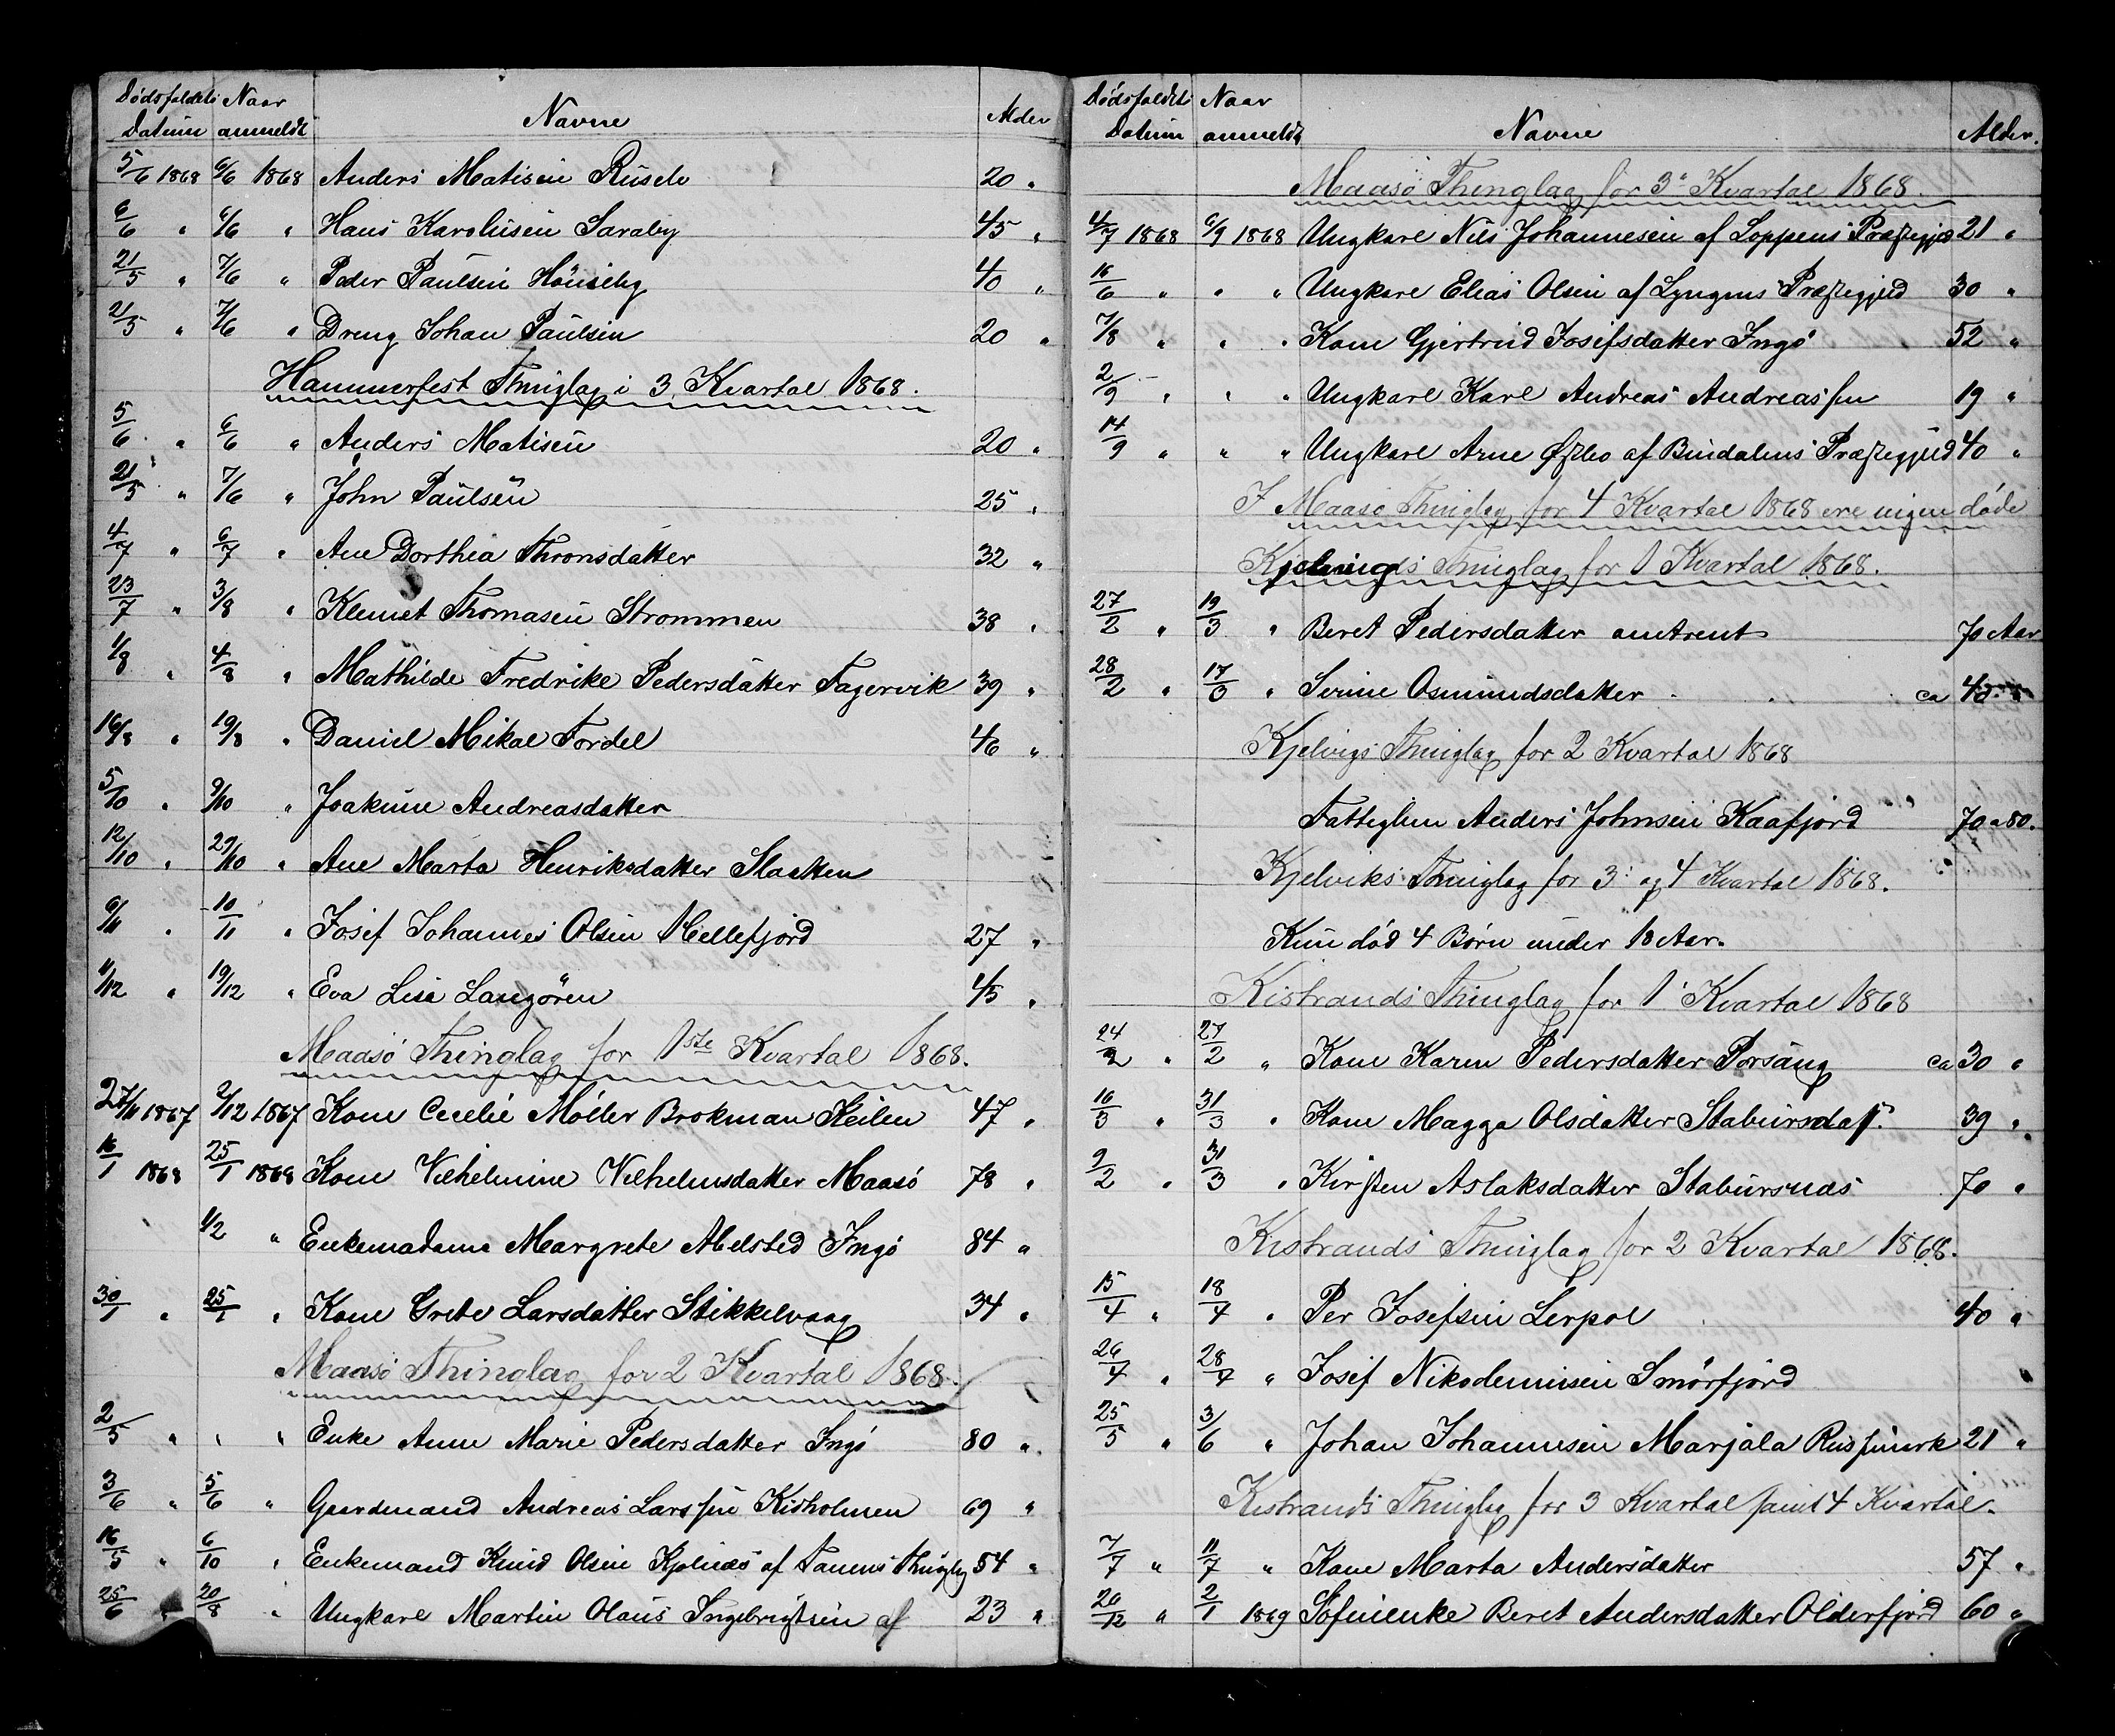 Dødsfaldets Naar
Datum anmeldt Navne Alder
5/6 1868 6/6 1868 Anders Matisen 20 "
6/6 " 6/6 " Hans Karolusen Saraby 45 "
21/5 " 7/6 " Peder Paulsen Hönseby 40 "
21/5 " 7/6 " Dreng Johan Paulsen 20 "
Hammerfest Thinglag i 3. Kvartal 1868.
5/6 " 6/6 " Anders Matisen 20 "
21/5 " 7/6 " John Paulsen 25 "
4/7 " 6/7 " Ane Dorthea Thronsdatter 32 "
23/7 " 3/8 " Klemet Thomasen Strommen 38 "
1/8 " 4/8 " Mathilde Fredrike Pedersdatter Fagervik 39 "
16/8 " 19/8 " Daniel Mikal Fordel 46 "
5/10 " 9/10 " Joakime Andreasdatter
12/10 " 29/10 " Ane Marta Henriksdatter Slaatten
6/11 " 10/11 " Josef Johannes Olsen Hellefjord 27 "
1/12 " 19/12 " Eva Lisa Langören 45 "
Maasö Thinglag for 1ste Kvartal 1868.
27/11 1867 9/12 1867 Kone Cecelie Möller Brokman Keilen 47 "
16/1 1868 25/1 1868 Kone Vilhelmine Vilhelmsdatter Maasö 78 "
1/2 " Enkemadame Margrete Abelsted Ingö 84 "
30/1 " 25/1 " Kone Grete Larsdatter Stikkelvaag 34 "
Maasö Thinglag for 2 Kvartal 1868.
2/5 " " " Enke Anne Marie Pedersdatter Ingö 80 "
3/6 " 5/6 " Gaardmand Andreas Larssen Kisholmen 69 "
16/5 " 6/10 " Enkemand Knud Olsen af Tanens Thinglag 54 "
25/6 " 20/8 " Ungkarl Martin Olaus Ingebrigtsen af 23 "
Dødsfaldets Naar
Datum anmeldt Navne Alder.
Maasö Thinglag for 3e Kvartal 1868.
4/7 1868 6/9 1868 Ungkarl Nils Johannesen af Loppens Præstegjæ 21 "
16/6 " " " Ungkarl Elias Olsen af Lyngens Præstegjeld 30 "
7/8 " " " Kone Gjertrud Josefsdatter Ingö 52 "
2/9 " " " Ungkarl Karl Andreas Andreassen 19 "
14/9 " " " Ungkarl Arne af Bindalens Præstegjeld 40 "
I Maasö Thinglag for 4 Kvartal 1868 ere ingen döde
Kjelvigs Thinglag for 1 Kvartal 1868.
27/2 " 19/3 " Beret Pedersdatter omtrent 70 Aar
28/2 " 17/3 " Serine Osmundsdatter ca 45 "
Kjelvigs Thinglag for 2 Kvartal 1868
Fattiglem Anders Johnsen Kaafjord 70 a 80.
Kjelviks Thinglag for 3: og 4 Kvartal 1868.
Kun död 4 Börn under 10 Aar.
Kistrands Thinglag for 1' Kvartal 1868
24/2 " 27/2 " Kone Karen Pedersdatter Porsang ca 30 "
16/3 " 31/3 " Kone Magga Olsdatter 39 "
9/2 " 31/3 " Kirsten Aslaksdatter Stabursnæs 70 "
Kistrands Thinglag for 2 Kvartal 1868.
15/4 " 18/4 " Per Josefsen Lerpol 40 "
26/4 " 28/4 " Josef Nikodemusen Smörfjord
25/5 " 3/6 " Johan Johannesen Marjala 21 "
Kistrands Thinglag for 3 Kvartal samt 4 Kvartal.
7/7 " 11/7 " Kone Marta Andersdatter 57 "
26/12 " 2/1 1869 Beret Andersdatter Olderfjord 60 "